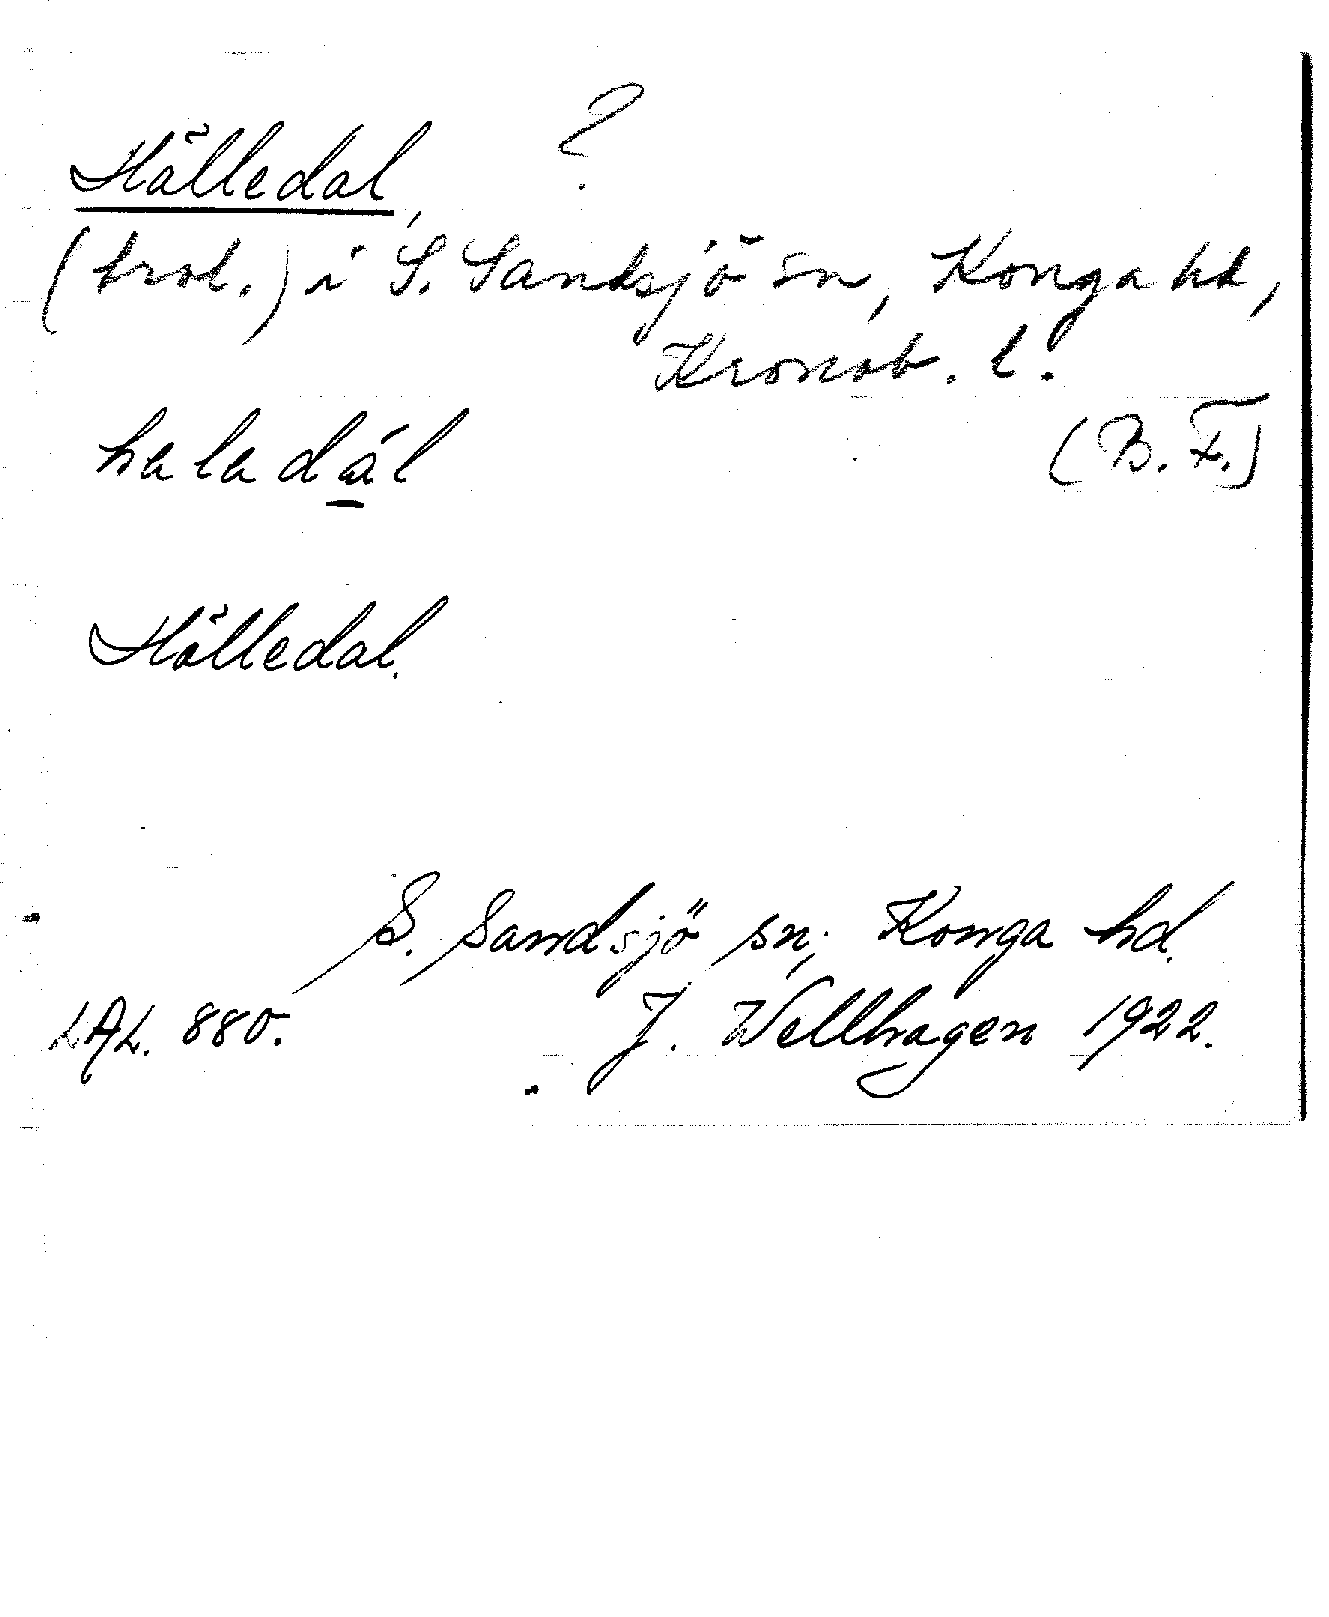 Hälledal, ?
(trol.) i S. Sandsjö sn, Konga hd,
Kronob. l.
haladál (B. F.)
Hälledal.
S. Sandsjö sn, Konga hd.
LAL. 880. J. Wellhagen 1922.